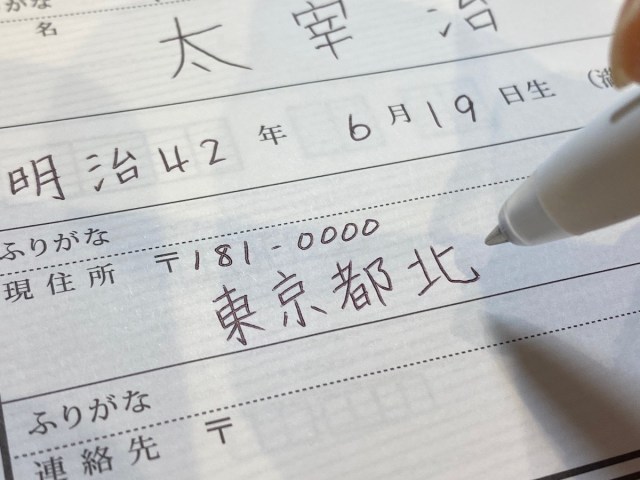 がな
名 太宰治
明治42年 6月19日生 (満
ふりがな
現住所 〒181-0000
東京都北
ふりがな
連絡先 〒